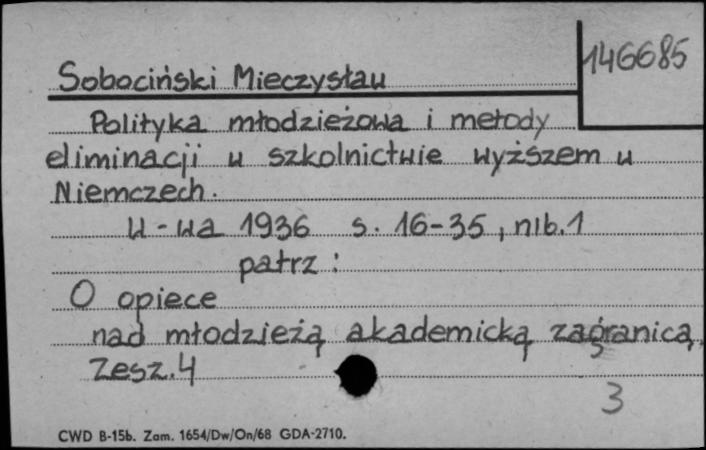 146685
Sobociński Mieczysław
Polityka młodzieżowa i metody
eliminacji w szkolnictwie wyższem w
Niemczech.
W-wa 1936 s. 16-35, nlb. 1
patrz:
O opiece
nad młodzieżą akademicką zagranicą,
Zesz. 4
3
CWD B-15b. Zam. 1654/Dw/On/68 GDA-2710.